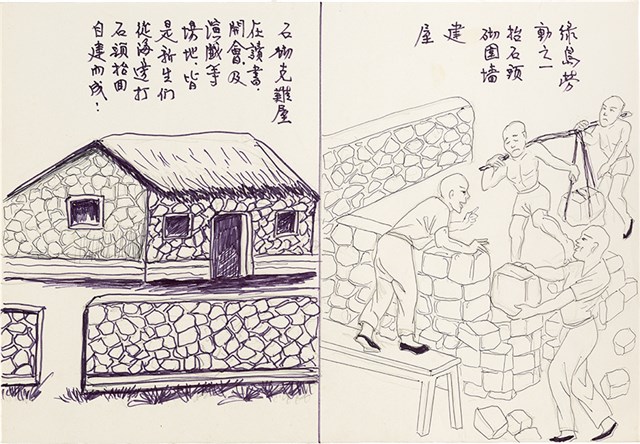 綠島勞
動之一
抬石頭
砌圍墻
建
屋
石砌克難屋
在讀書、
開會及
演戲等
場地皆
是新生們
從海邊打
石頭抬回
自建而成！